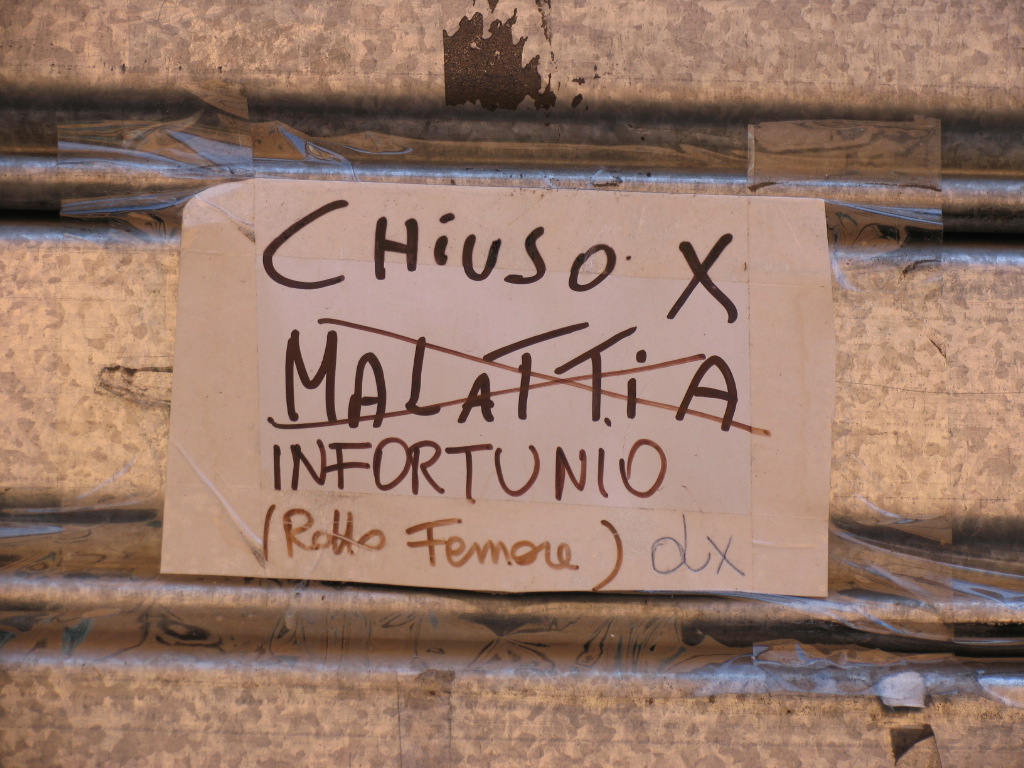 CHiUSO X
MALATTiA
INFORTUNIO
(Rotto Femore) dx